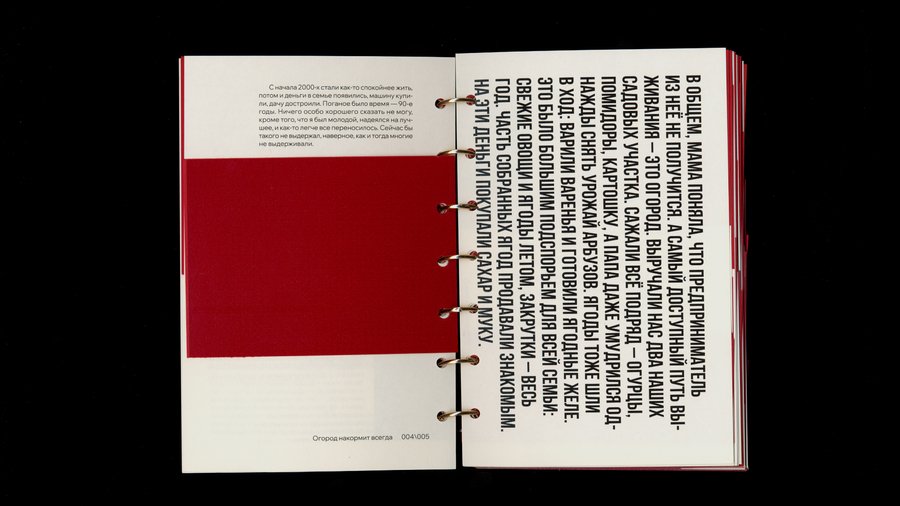 С начала 2000-х стали как-то спокойнее жить,
потом и деньги в семье появились, машину купи-
ли, дачу достроили. Поганое было время — 90-е
годы. Ничего особо хорошего сказать не могу,
кроме того, что я был молодой, надеялся на луч-
шее, и как-то легче все переносилось. Сейчас бы
такого не выдержал, наверное, как и тогда многие
не выдерживали.
Огород накормит всегда 004\005
В ОБЩЕМ, МАМА ПОНЯЛА, ЧТО ПРЕДПРИНИМАТЕЛЬ
ИЗ НЕЁ НЕ ПОЛУЧИТСЯ. А САМЫЙ ДОСТУПНЫЙ ПУТЬ ВЫ-
ЖИВАНИЯ — ЭТО ОГОРОД. ВЫРУЧАЛИ НАС ДВА НАШИХ
САДОВЫХ УЧАСТКА. САЖАЛИ ВСЁ ПОДРЯД — ОГУРЦЫ,
ПОМИДОРЫ, КАРТОШКУ, А ПАПА ДАЖЕ УМУДРИЛСЯ ОД-
НАЖДЫ СНЯТЬ УРОЖАЙ АРБУЗОВ. ЯГОДЫ ТОЖЕ ШЛИ
В ХОД: ВАРИЛИ ВАРЕНЬЯ И ГОТОВИЛИ ЯГОДНЫЕ ЖЕЛЕ.
ЭТО БЫЛО БОЛЬШИМ ПОДСПОРЬЕМ ДЛЯ ВСЕЙ СЕМЬИ:
СВЕЖИЕ ОВОЩИ И ЯГОДЫ ЛЕТОМ, ЗАКРУТКИ — ВЕСЬ
ГОД. ЧАСТЬ СОБРАННЫХ ЯГОД ПРОДАВАЛИ ЗНАКОМЫМ.
НА ЭТИ ДЕНЬГИ ПОКУПАЛИ САХАР И МУКУ.